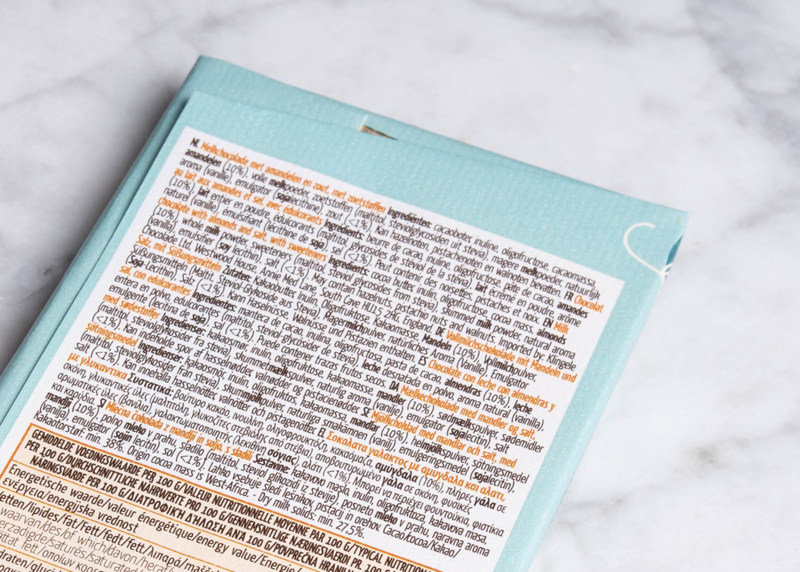 NL Melkchocolade met amandelen en zout, met zoetstoffen Ingrediënten: cacaoboter, inuline, oligofructose, cacaomassa,
amandelen (10%), volle melkpoeder, zoetstoffen (maltitol, steviolglycosiden uit stevia), magere melkpoeder, natuurlijk
aroma (vanille), emulgator (sojalecithine), zout (<1%). Kan hazelnoten, pistachenoten en walnoten bevatten. FR Chocolat
au lait aux amandes et sel, avec édulcorants Ingrédients: beurre de cacao, inuline, oligofructose, pâte de cacao, amandes
(10%), lait entier en poudre, édulcorants (maltitol, glycosides de stéviol de la stevia), lait écrémé en poudre, arôme
naturel (vanille), émulsifiant (lécithine de soja), sel (<1%). Peut contenir des noisettes, pistaches et noix. EN Milk
chocolate with almonds and salt, with sweeteners Ingredients: cocoa butter, inulin, oligofructose, cocoa mass, almonds
(10%), whole milk powder, sweeteners (maltitol, steviol glycosides from stevia), skimmed milk powder, natural aroma
(vanilla), emulsifier (soy lecithin), salt (<1%). May contain hazelnuts, pistachio nuts and walnuts. Imported by: Klingele
Chocolade Ltd. Lane, South Cave England. DE Vollmilchschokolade mit Mandeln und
Salz, mit Süßungsmitteln Zutaten: Kakaobutter, Inulin, Oligofruktose, Kakaomasse, Mandeln (10%), Vollmilchpulver,
Süßungsmitteln (Maltit, Steviol-Glycoside aus Stevia), Magermilchpulver, natürliches Aroma (Vanille), Emulgator
(Soja Lecithin), Salz (<1%). Kann Haselnüsse, Walnüsse und Pistazien enthalten. ES Chocolate con leche con almendras y
sal, con edulcorantes Ingredientes: manteca de cacao, inulina, oligofructosa, pasta de cacao, almendras (10%), leche
entera en polvo, edulcorantes (maltitol, stevia), leche desnatada en polvo, aroma natural (vainilla),
emulgente (lecitina de soja), sal (<1%). Puede contener frutos secos. DA Mælkechokolade med mandler og salt,
med sødestoffer Ingredienser: kakaosmør, inulin, oligofruktose, kakaomasse, mandler (10%), sødmælkspulver, sødemidler
(maltitol, steviolglycosider fra stevia), skummetmælkspulver, naturlig aroma (vanilje), emulgator (sojalecitin), salt
(<1%). Kan indeholde spor af hasselnødder, valnødder og pistacienødder. SE Mjölkchoklad med mandlar och salt, med
sötningsmedel Ingredienser: kakaosmör, inulin, oligofruktos, kakaomassa, mandlar (10%), helmjölkspulver, sötningsmedel
(maltitol, steviolglykosider från stevia), skummjölkspulver, naturliga smakämnen (vanilj), emulgeringsmedel (sojalecitin),
salt (<1%). Kan innehålla hasselnötter valnötter och pistagenötter. EL Σοκολάτα γάλακτος με αμύγδαλα και αλάτι,
με γλυκαντικά Συστατικά: βούτυρο κακάο, ινουλίνη, ολιγοφρουκτόζη, κακαόμαζα, αμύγδαλα (10%), πλήρες γάλα σε
σκόνη, γλυκαντικές ύλες (μαλτιτόλη, γλυκοζίτες στεβιόλης από στέβια), αποβουτυρωμένο γάλα σε σκόνη, φυσικό
άρωμα (βανίλια), γαλακτωματοποιητής (λεκιθίνη σόγιας), αλάτι (<1%). Μπορεί να περιέχει φουντούκια, φιστίκια
και καρύδια. SI Mlečna čokolada z mandlji in soljo, s sladili Sestavine: kakavovo maslo, inulin, oligofruktoza, kakavova masa,
mandlji (10%), polno mleko v prahu, sladilo (maltitol, steviol glikozidi iz stevije), posneto mleko v prahu, naravna aroma
(vanilija), emulgator (sojin lecitin), sol (<1%). Lahko vsebuje sledi lešnikov, pistacij in orehov. Cacao/cocoa/Kakao/
kakaotorrstof: min. 38%. Origin cocoa mass is West-Africa. - Dry milk solids: min. 27.5%.
GEMIDDELDE VOEDINGSWAARDE PER 100 G/VALEUR NUTRITIONNELLE MOYENNE PAR 100 G/TYPICAL NUTRITION
PER 100 G/DURCHSCHNITTLICHE NÄHRWERTE PRO 100 G/GENNEMSNITLIGE NÆRINGSVÆRDI PR. 100 G
NÄRINGSVÄRDE PER 100 G/ΔΙΑΤΡΟΦΙΚΗ ΔΗΛΩΣΗ ΑΝΑ 100 Γ/POVPREČNA HRANILN
Energetische waarde/valeur énergétique/energy value/Energie/
ενέργεια/energijska vrednost
etten/lipides/fat/Fett/fedt/fett/λιπαρά/mašč
waarvan/des/of which/davon/heraf
erzadigde/saturés/saturated